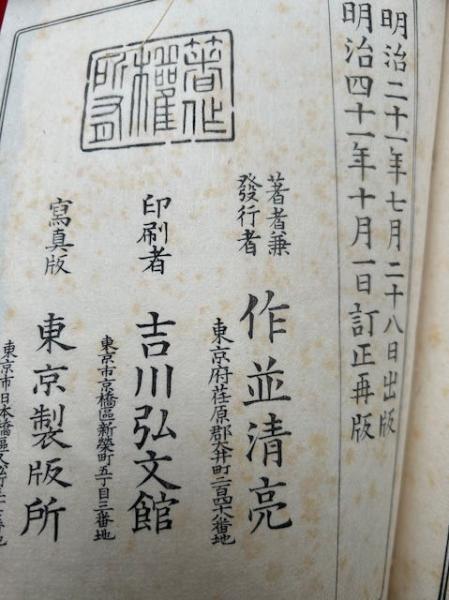 明治二十一年七月二十八日出版
明治四十一年十月一日訂正再版
著作權所有
著者兼發行者
作並清亮
東京府荏原郡大井町二百四十八番地
印刷者
吉川弘文館
東京市京橋區新榮町五丁目三番地
寫真版
東京製版所
東京市日本橋區